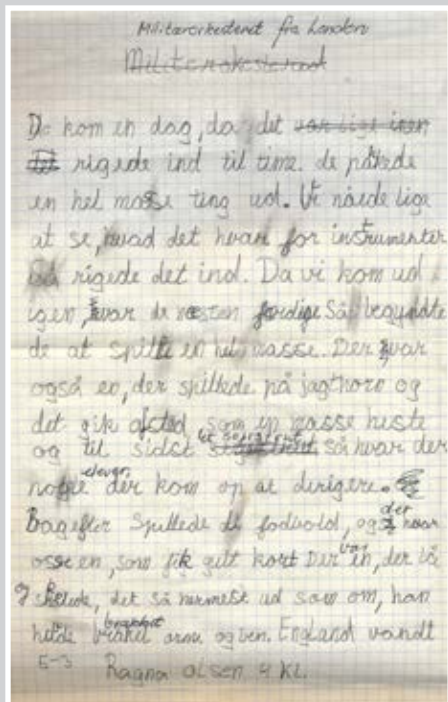 Militærorkesteret fra London
Militærokesteret
De kom en dag, da det var lige inen
det rigede ind til time. de påkede
en hel masse ting ud. Vi nåede lige
at se, hvad det hvar for instrumenter
så rigede det ind. Da vi kom ud
igen, hvar de næsten færdige Så begyndte
de at spille en hel masse. Der hvar
også en, der spillede på jagthorn og
det gik afsted som en masse heste
og til sidst så hvar der
nogle elever der kom op at dirigere.
Bagefter spillede de fodbold, og det hvar
osse en, som fik gult kort Der var en, der lå
og skelede, det så nærmest ud som om, han
hvde brækket arme og ben. England vandt
5-3 Ragna Olsen 4 Kl.